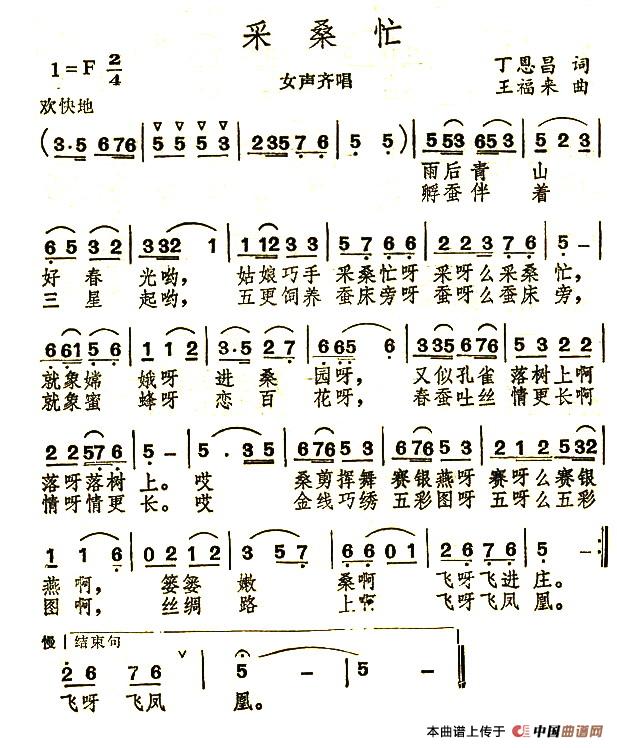 采桑忙
1=F 2/4
女声齐唱
丁恩昌 词
王福来 曲
欢快地
(3·5 676 | 5 5 5 3 | 235 7 6 | 5 5) | 553 653 | 5 2 3 |
雨后青山
孵蚕伴着
6 5 3 2 | 332 1 | 1 12 3 5 | 5 7 6 6 | 2 2 3 7 6 | 5 - |
好春光哟，姑娘巧手 采桑忙呀 采呀么采桑忙，
三星起哟，五更饲养 蚕床旁呀 蚕呀么蚕床旁，
6 61 5 6 | 1 1 2 | 3·5 2 7 | 6 65 6 | 335 676 | 5 3 2 2 |
就象嫦娥呀 进桑园呀，又似孔雀 落树上啊
就象蜜蜂呀 恋百花呀，春蚕吐丝 情更长啊
2 2 57 6 | 5 - | 5· 3 5 | 676 5 3 | 676 5 3 | 2 1 2 5 32 |
落呀落树上。哎 桑剪挥舞 赛银燕呀 赛呀么赛银
情呀情更长。哎 金线巧绣 五彩图呀 五呀么五彩
1 1 6 | 0 2 1 2 | 3 5 7 | 6 6 0 1 | 6 2 7 6 | 5 - :|
燕啊，篓篓嫩桑啊 飞呀飞进庄。
图啊，丝绸路上啊 飞呀飞凤凰。
慢 结束句
2 6 7 6 | 5 - | 5 - |
飞呀飞凤凰。
本曲谱上传于 中国曲谱网